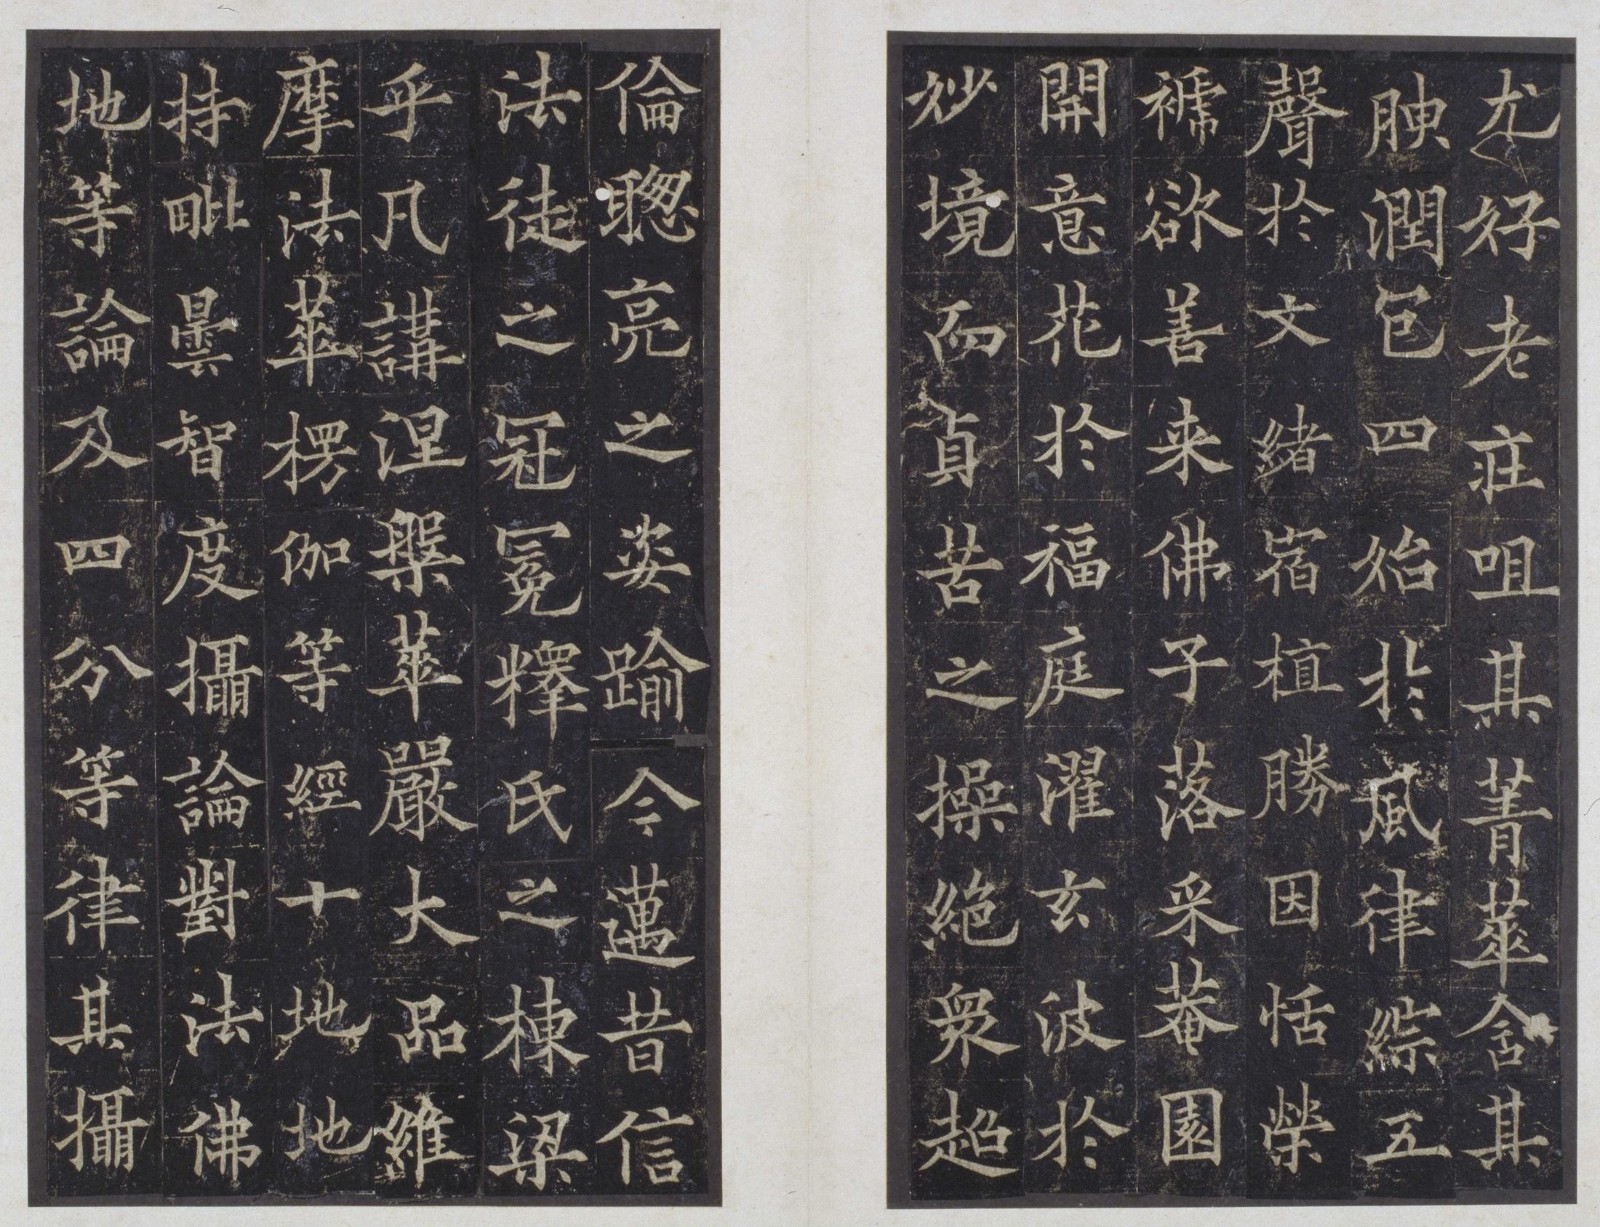 尤好老荘咀其菁華含其
腴潤包四始於風律綜五
聲於文緒宿植勝因恬榮
褫欲善来佛子落采菴園
開意花於福庭濯玄波於
妙境而貞苦之操絕衆超
倫聦亮之姿踰今邁昔信
法徒之冠冕釋氏之棟梁
乎凡講涅槃華嚴大品維
摩法華楞伽等經十地地
持毗曇智度攝論對法佛
地等論及四分等律其攝